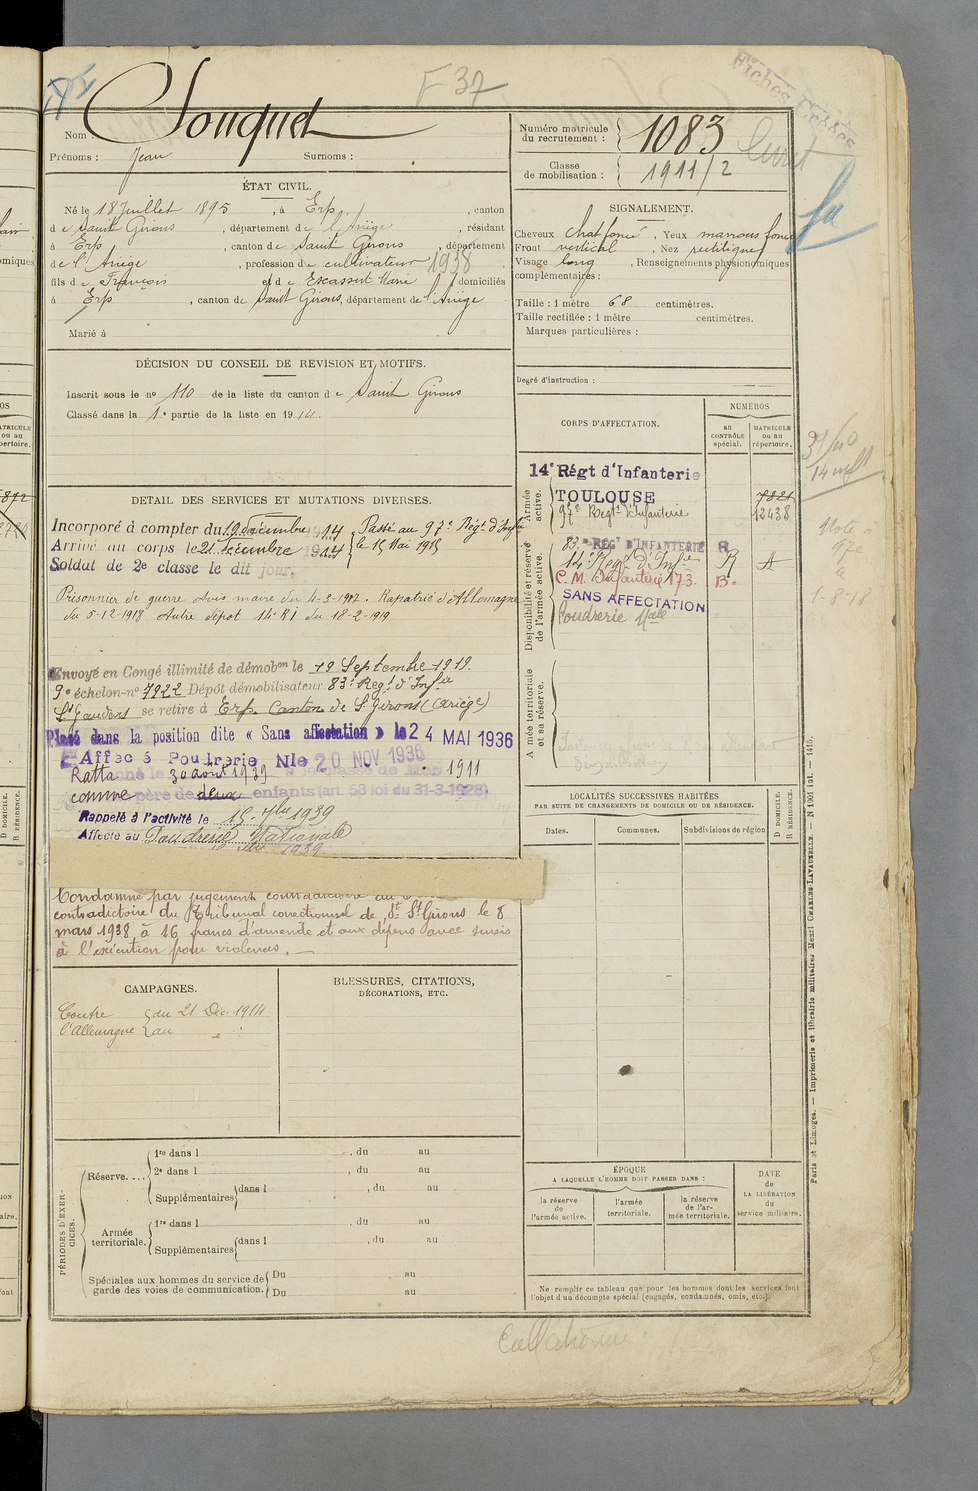 F 37
Fiches
Nom : Souquet
Prénoms : Jean Surnoms :
Numéro matricule du recrutement : 1083
Classe de mobilisation : 1911/2
ÉTAT CIVIL.
Né le 18 Juillet 1895, à Erp, canton
de Saint Girons, département de l'Ariège, résidant
à Erp, canton de Saint Girons, département
de l'Ariège, profession de cultivateur 1938
fils de François et de Escassut Marie, domiciliés
à Erp, canton de Saint Girons, département de l'Ariège
Marié à
SIGNALEMENT.
Cheveux chat foncé, Yeux marrons foncé
Front vertical, Nez rectiligne
Visage long, Renseignements physionomiques
complémentaires :
Taille : 1 mètre 68 centimètres.
Taille rectifiée : 1 mètre centimètres.
Marques particulières :
Degré d'instruction :
DÉCISION DU CONSEIL DE REVISION ET MOTIFS.
Inscrit sous le no 110 de la liste du canton de Saint Girons
Classé dans la 1e partie de la liste en 1914
CORPS D'AFFECTATION.
NUMÉROS
au contrôle spécial.
MATRICULE ou au répertoire.
Armée active.
14e Régt d'Infanterie
TOULOUSE
97e Regt d'Infanterie
7821
12438
Disponibilité et réserve de l'armée active.
83.e REGt D'INFANTERIE R
14e Regt d'Infie R A
C.M. Infanterie 173. B.
SANS AFFECTATION
Poudrerie Nale
Armée territoriale et sa réserve.
DETAIL DES SERVICES ET MUTATIONS DIVERSES.
Incorporé à compter du 19 Décembre 1914 Passé au 97e Régt d'Infie
Arrivé au corps le 21 Décembre 1914 le 15 Mai 1915
Soldat de 2e classe le dit jour.
Prisonnier de guerre Avis maire du 4-3-1917. Rapatrié d'Allemagne
du 5-12-1918 Autre dépot 14e RI du 18-2-1919
Envoyé en Congé illimité de démobon le 19 Septembre 1919.
9e échelon-no 7922 Dépôt démobilisateur 83e Regt d'Infie
St Gaudens se retire à Erp Canton de St Girons (Ariège)
Placé dans la position dite « Sans affectation » le 24 MAI 1936
Affecté Poudrerie Nle 20 NOV 1936
30 août 1939 1911
comme père de deux enfants (art. 58 loi du 31-3-1928).
Rappelé à l'activité le 15 7bre 1939
Affecté au Poudrerie Nationale
1939
contradictoire du Tribunal correctionnel de St Girons le 8
mars 1938 à 16 francs d'amende et aux dépens avec sursis
à l'exécution pour violences.
LOCALITÉS SUCCESSIVES HABITÉES
PAR SUITE DE CHANGEMENTS DE DOMICILE OU DE RÉSIDENCE.
Dates. Communes. Subdivisions de région
D DOMICILE. R RÉSIDENCE.
CAMPAGNES.
Contre l'Allemagne du 21 Déc. 1914
au
BLESSURES, CITATIONS, DÉCORATIONS, ETC.
PÉRIODES D'EXERCICES.
Réserve.... 1re dans l , du au
2e dans l , du au
Supplémentaires dans l , du au
Armée territoriale. 1re dans l , du au
Supplémentaires dans l , du au
Spéciales aux hommes du service de garde des voies de communication. Du au
Du au
ÉPOQUE
A LAQUELLE L'HOMME DOIT PASSER DANS :
la réserve de l'armée active.
l'armée territoriale.
la réserve de l'armée territoriale.
DATE de LA LIBÉRATION du service militaire.
Ne remplir ce tableau que pour les hommes dont les services font
l'objet d'un décompte spécial (engagés, condamnés, omis, etc.).
Paris et Limoges. — Imprimerie et librairie militaires Henri CHARLES-LAVAUZELLE.